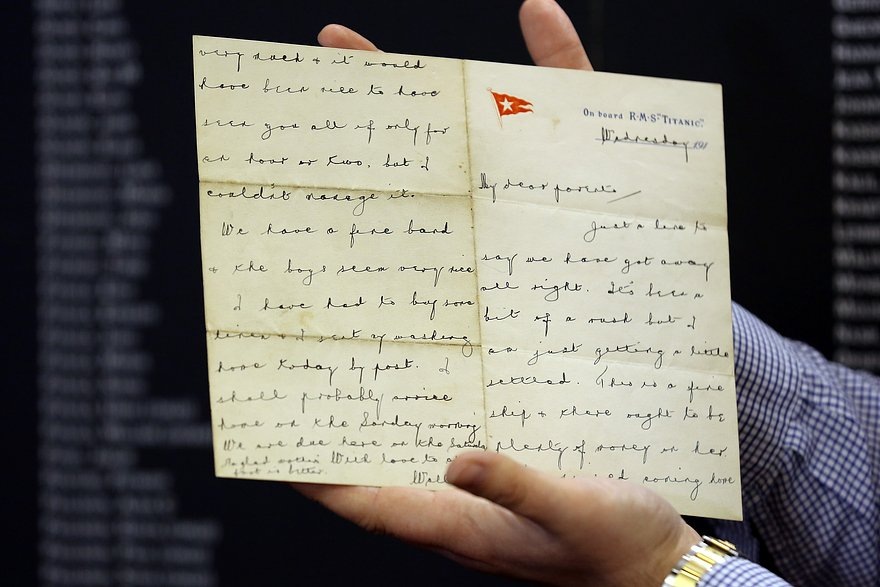 On board R·M·S "TITANIC".
Wednesday 191
My dear parents
Just a line to
say we have got away
all right. It's been a
bit of a rush but I
am just getting a little
settled. This is a fine
ship & there ought to be
plenty of money on her
coming home
very much & it would
have been nice to have
seen you all if only for
an hour or two, but I
couldn't manage it.
We have a fine band
& the boys seem very nice
I have had to buy some
linen & I sent my washing
home today by post. I
shall probably arrive
home on the Sunday morning
We are due here on the Saturday
With love to
foot is better.